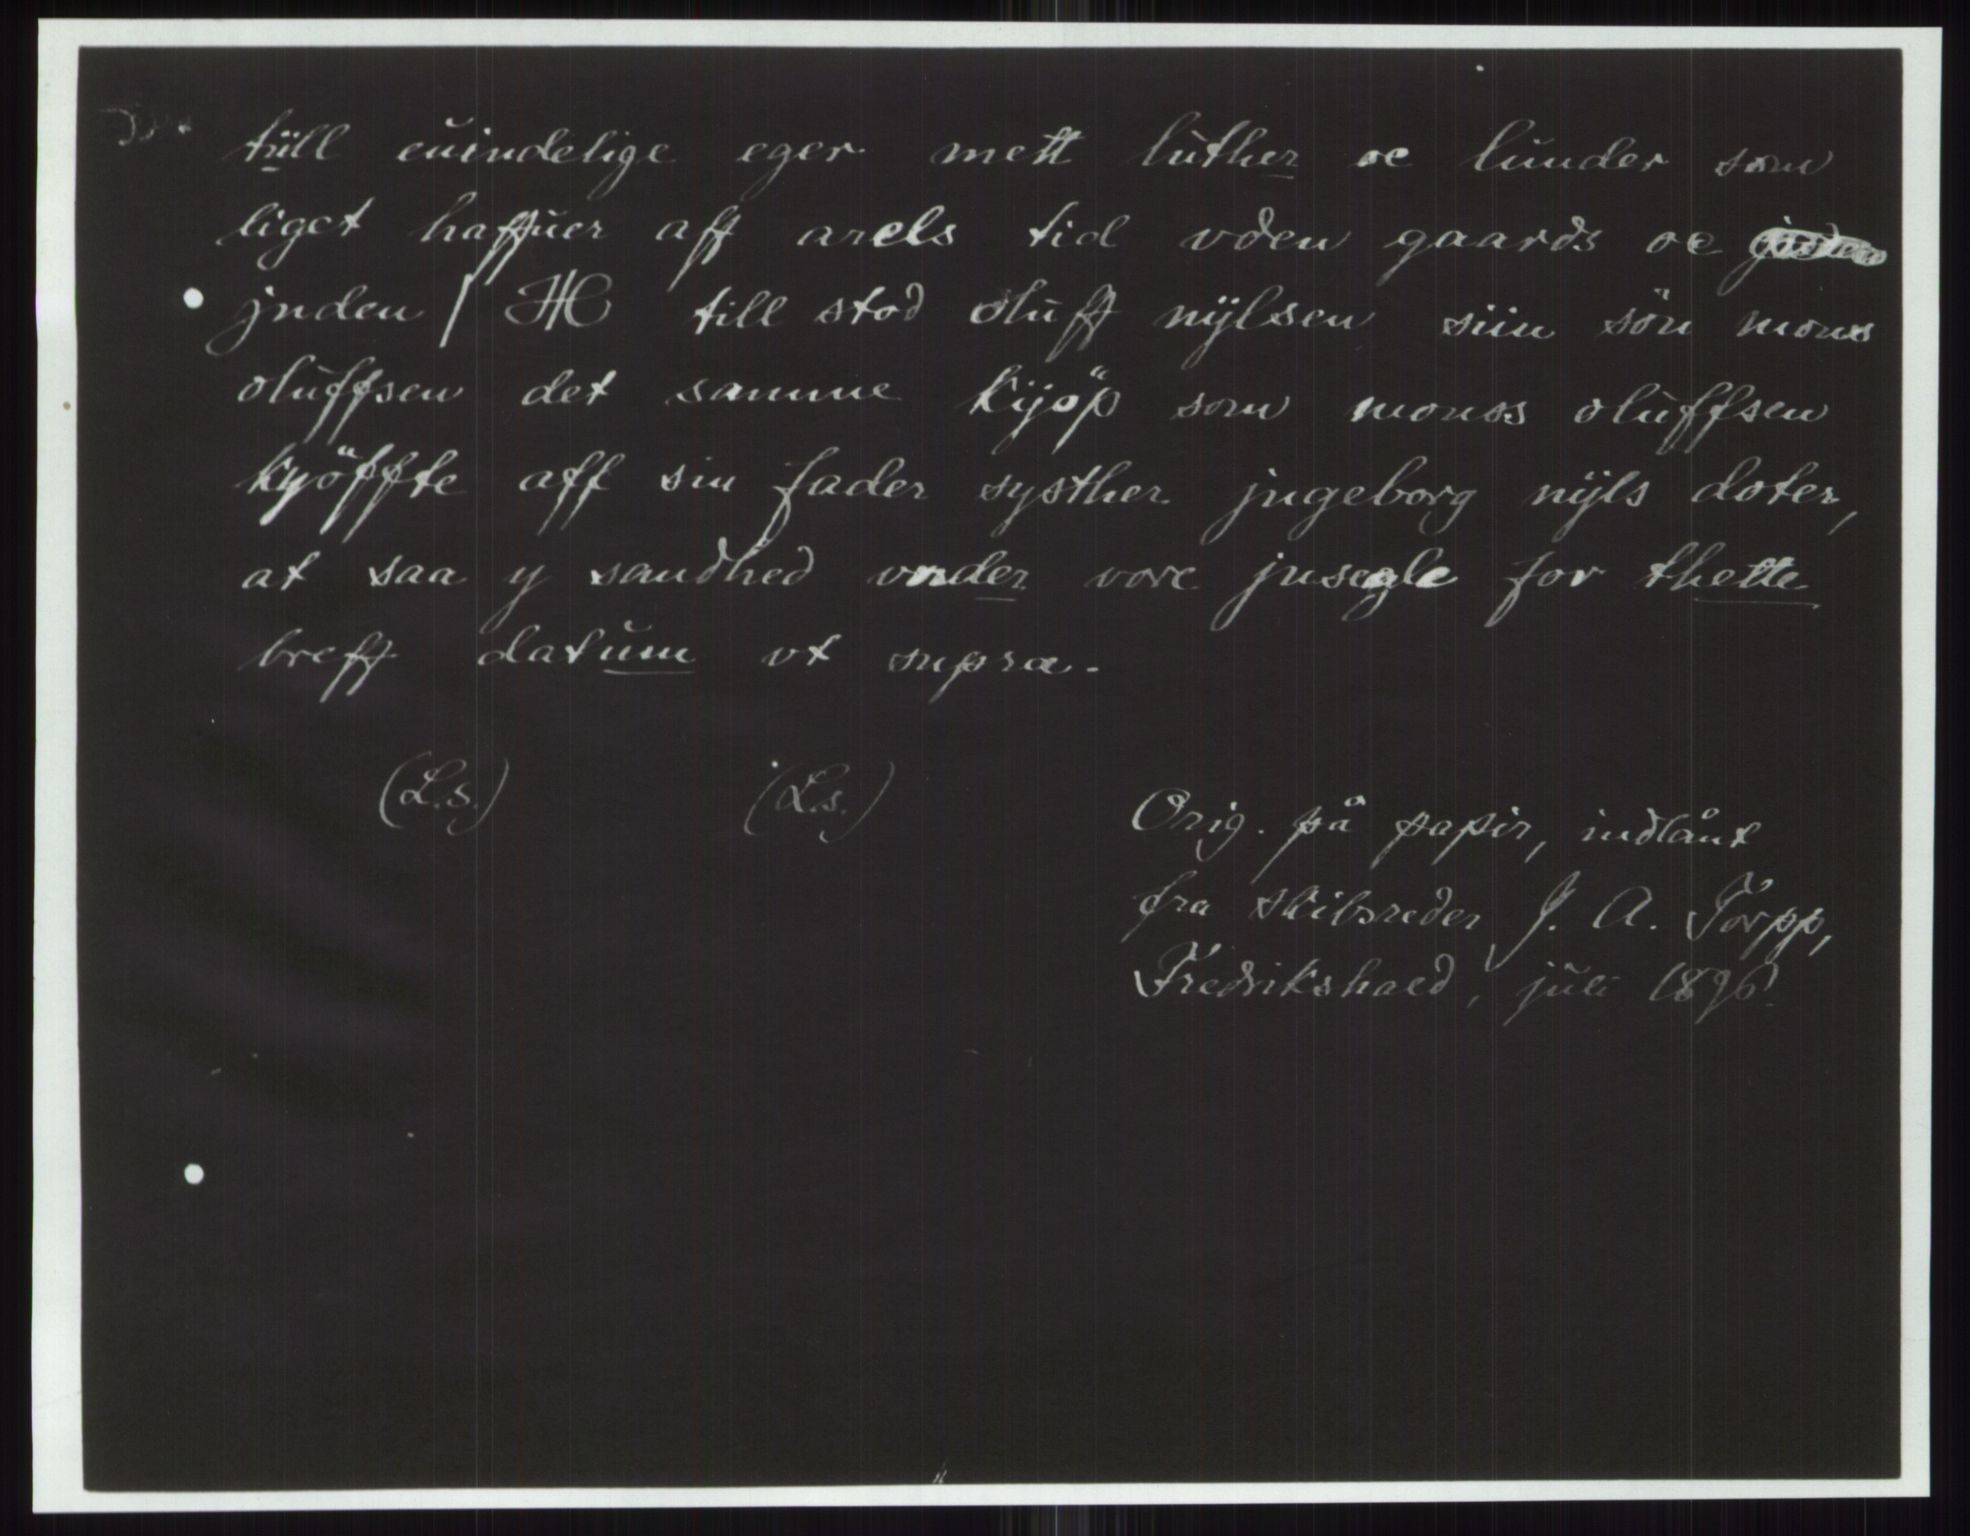 tüll euindelige eger mett luther oc lunder som
liget haffuer aff arels tid vden gaards oc
jnden / H till stod oluff nÿlsen siin sön mons
oluffsen det samme kÿöp som monss oluffsen
kyöffte aff sin fader systher jngeborg nÿls doter,
at saa y sandhed vnder vore jnsegle for thette
breff datum vt supra.
(L.s.) (L.s.)
Orig. på papir, indlånt
fra skibsreder J. A. Torpp,
Fredrikshald, juli 1896.